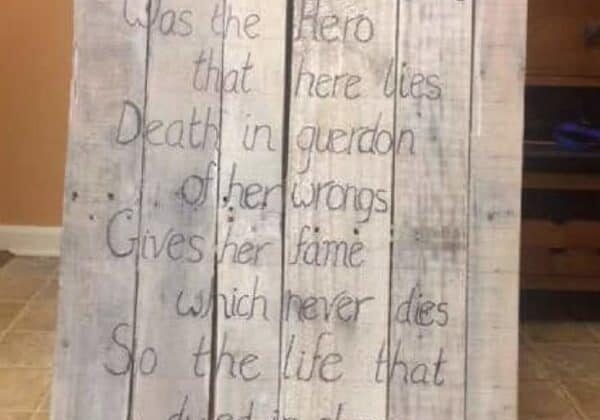 Was the Hero
that here lies
Death in guerdon
of her wrongs
Gives her fame
which never dies
So the life that